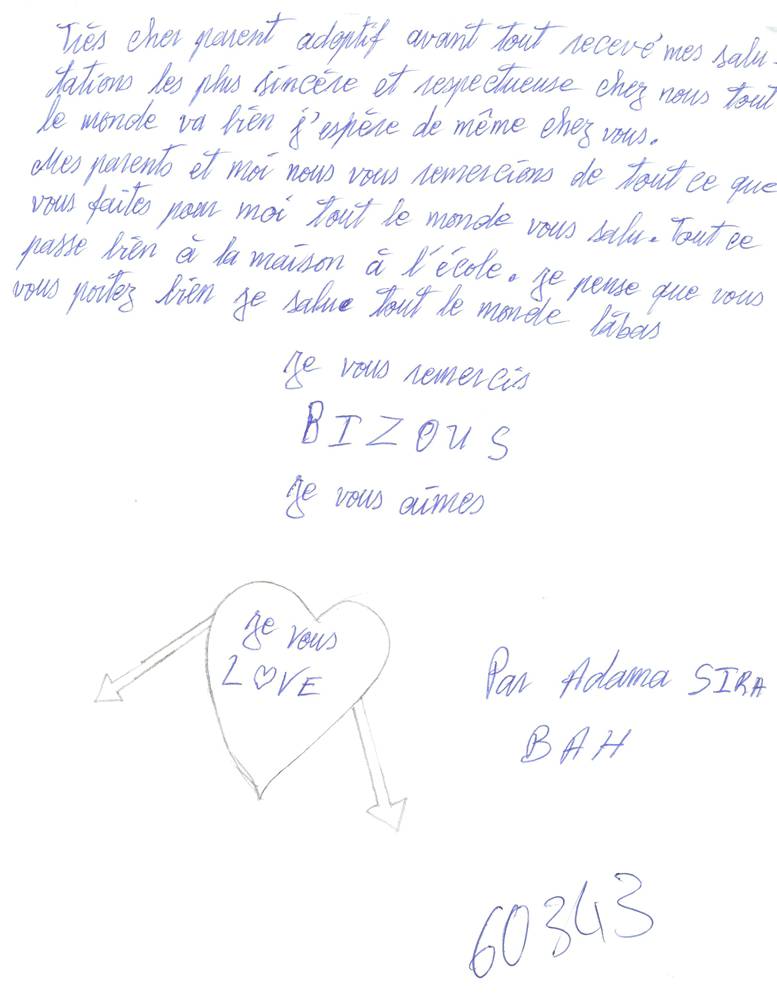 Très cher parent adoptif avant tout recevé mes salu-
tations les plus sincère et respectueuse chez nous tout
le monde va bien j'espère de même chez vous.
Mes parents et moi nous vous remercions de tout ce que
vous faites pour moi tout le monde vous salu. Tout ce
passe bien à la maison à l'école. je pense que vous
vous portez bien je salue tout le monde lâbas
je vous remercis
BIZOUS
je vous aimes
je vous
LOVE
Par Adama SIRA
BAH
60343